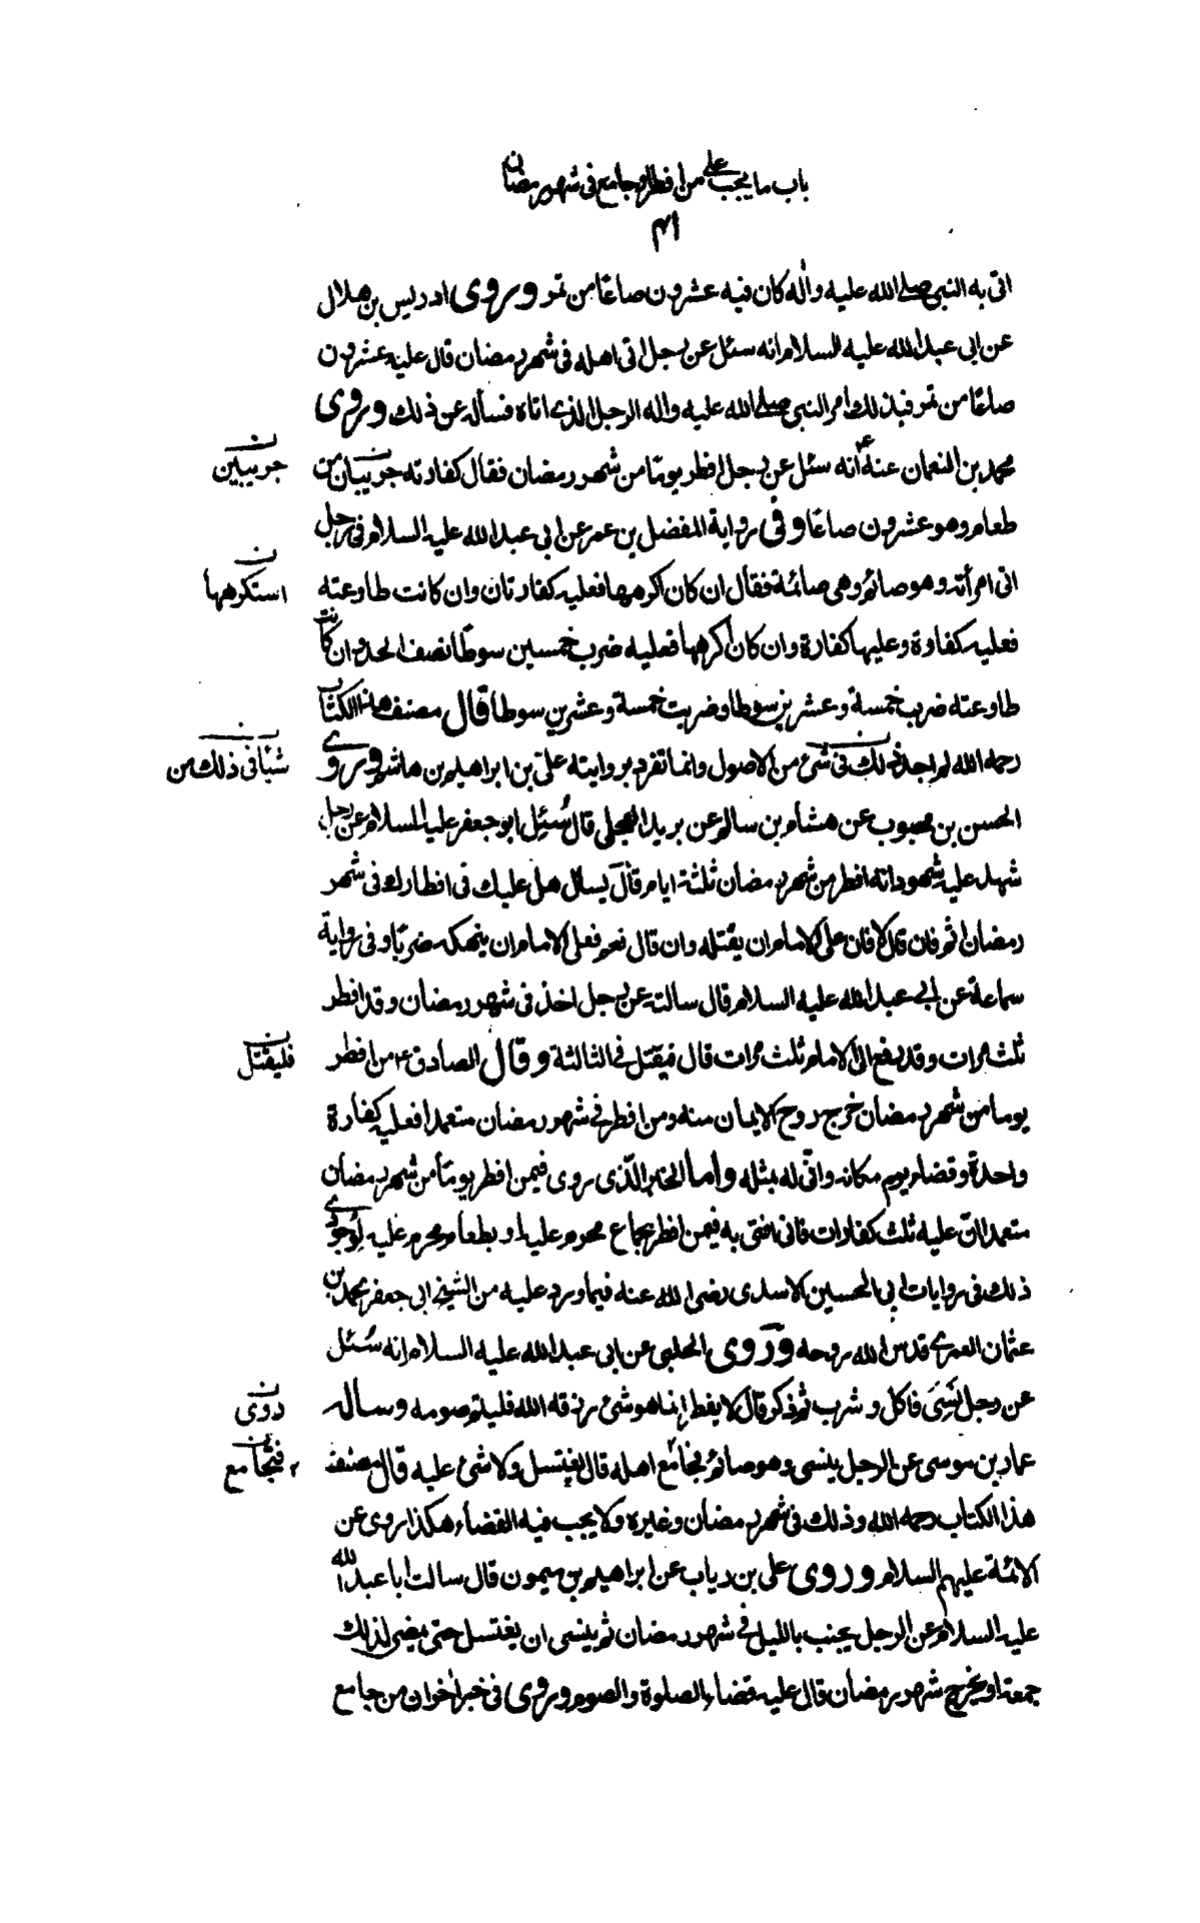 باب ما يجب على من افطر او جامع فى شهر رمضان
۴۱
اتى به النبى صلے الله عليه واٰله كان فيه عشرون صاعًا من تمر وروى ادريس بن هلال
عن ابى عبد الله عليه السلام انه سئل عن رجل اتى اهله فى شهر رمضان قال عليه عشرون
صاعًا من تمر فبذلك امر النبى صلے الله عليه واله الرجل الذے اتاه فسأله عن ذلك وروى
محمد بن النعمان عنه ع انه سئل عن رجل افطر يومًا من شهر رمضان فقال كفارته جريبان من
جريبين
طعام وهو عشرون صاعًا وفى رواية المفضل بن عمر عن ابى عبد الله عليه السلام فى رجل
اتى امرأته وهو صائم وهى صائمة فقال ان كان اكرهها فعليه كفارتان وان كانت طاوعته
استكرهها
فعليه كفارة وعليها كفارة وان كان اكرهها فعليه ضرب خمسين سوطًا نصف الحد وان كانت
طاوعته ضرب خمسة وعشرين سوطا وضربت خمسة وعشرين سوطا قال مصنف هذا الكتاب
رحمه الله لم اجد ذلك فى شئ من الاصول وانما تفرد بروايته علىّ بن ابراهيم بن هاشم وروے
شيأ فى ذلك من
الحسن بن محبوب عن هشام بن سالم عن بريد العجلى قال سُئِل ابو جعفر عليه السلام عن رجل
شهد عليه شهود انه افطر من شهر رمضان ثلثة ايام قال يسال هل عليك فى افطارك فى شهر
رمضان اثم فان قال لا فان على الامام ان يقتله وان قال نعم فعلى الامام ان ينهكه ضربًا وفى رواية
سماعة عن ابى عبد الله عليه السلام قال سالته عن رجل اخذ فى شهر رمضان وقد افطر
ثلث مرات وقد رفع الى الامام ثلث مرات قال فيقتل فى الثالثة وقال الصادق ع من افطر
فليقتل
يوما من شهر رمضان خرج روح الايمان منه ومن افطر فى شهر رمضان متعمدا فعليه كفارة
واحدة وقضاء يوم مكانه وانّى له بمثله واما الخبر الّذى روى فيمن افطر يومًا من شهر رمضان
متعمدا انّ عليه ثلث كفارات فانى افتى به فيمن افطر بجماع محرم عليه او بطعام محرم عليه لوجود
ذلك فى روايات ابى الحسين الاسدى رضى الله عنه فيما ورد عليه من الشيخ ابى جعفر محمد بن
عثمان العمرے قدس الله روحه وروى الحلبى عن ابى عبد الله عليه السلام انه سُئل
عن رجل نَسِىَ فاكل وشرب ثم ذكر قال لا يفطر انما هو شئ رزقه الله فليتم صومه وساله
روى
عمار بن موسى عن الرجل ينسى وهو صائم فجامع اهله قال يغتسل ولا شئ عليه قال مصنف
فيجامع
هذا الكتاب رحمه الله وذلك فى شهر رمضان وغيره ولا يجب فيه القضاء هكذا روى عن
الائمة عليهم السلام وروى على بن رياب عن ابراهيم بن ميمون قال سالت ابا عبد الله
عليه السلام عن الرجل يجنب بالليل فى شهر رمضان ثم ينسى ان يغتسل حتى يمضى لذلك
جمعة او يخرج شهر رمضان قال عليه قضاء الصلوة والصوم وروى فى خبر اٰخر ان من جامع